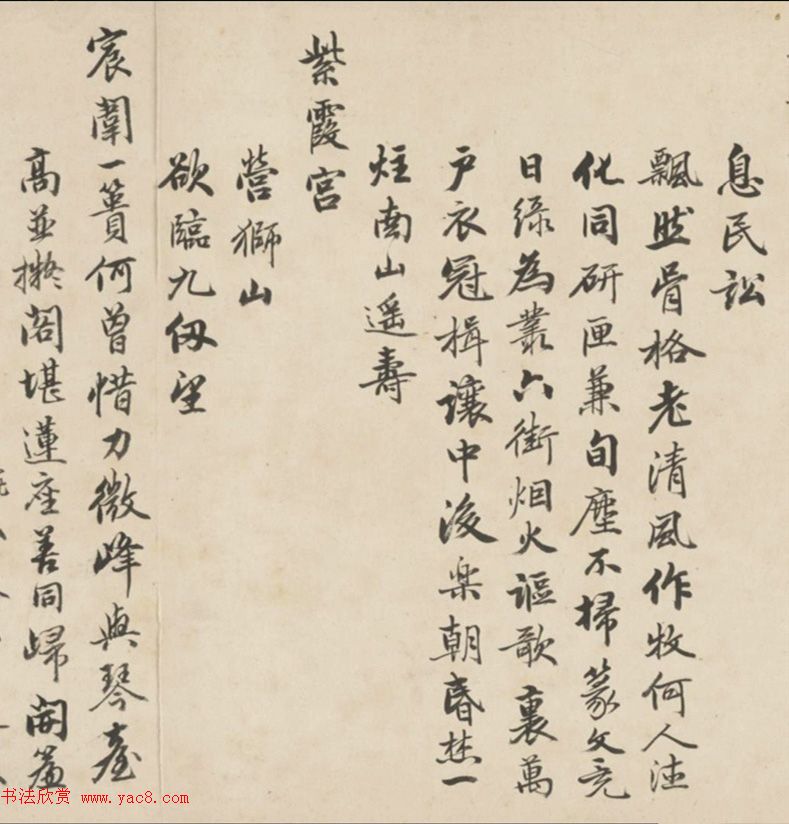 息民訟
飄然骨格老清風作牧何人德
化同研匣兼旬塵不掃篆文竟
日綠為叢六街烟火謳歌裏萬
戶衣冠揖讓中後樂朝昏焚一
炷南山遥壽
紫霞宫
營獅山
欲臨九仭望
宸闈一簣何曾惜力微峰與琴臺
高並擬閣堪蓮座善同歸開簾
书法欣赏 www.yac8.com